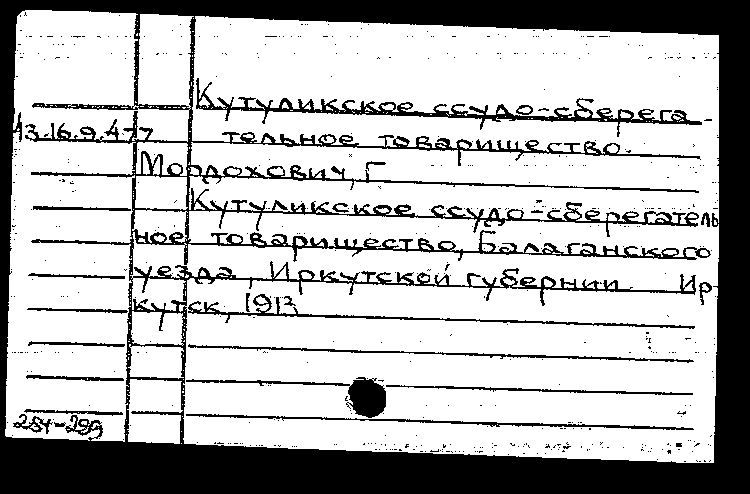 Кутуликское ссудо-сберега-
А3.16.9.477 тельное товарищество.
Мордохович, Г
Кутуликское ссудо-сберегатель
ное товарищество, Балаганского
уезда, Иркутской губернии Ир-
кутск, 1913
284-299